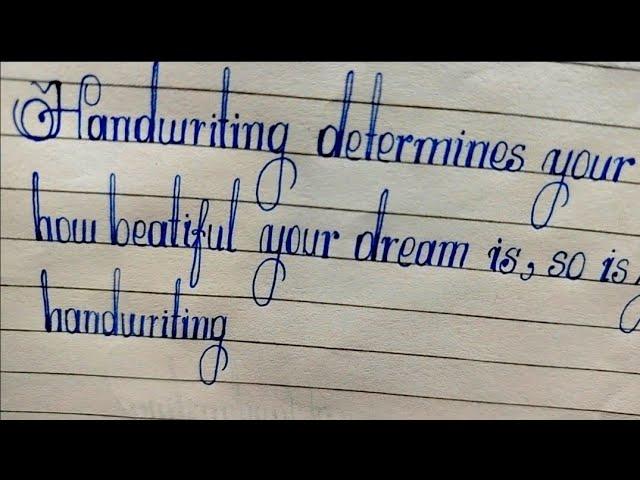 Handwriting determines your
how beatiful your dream is, so is
handwriting